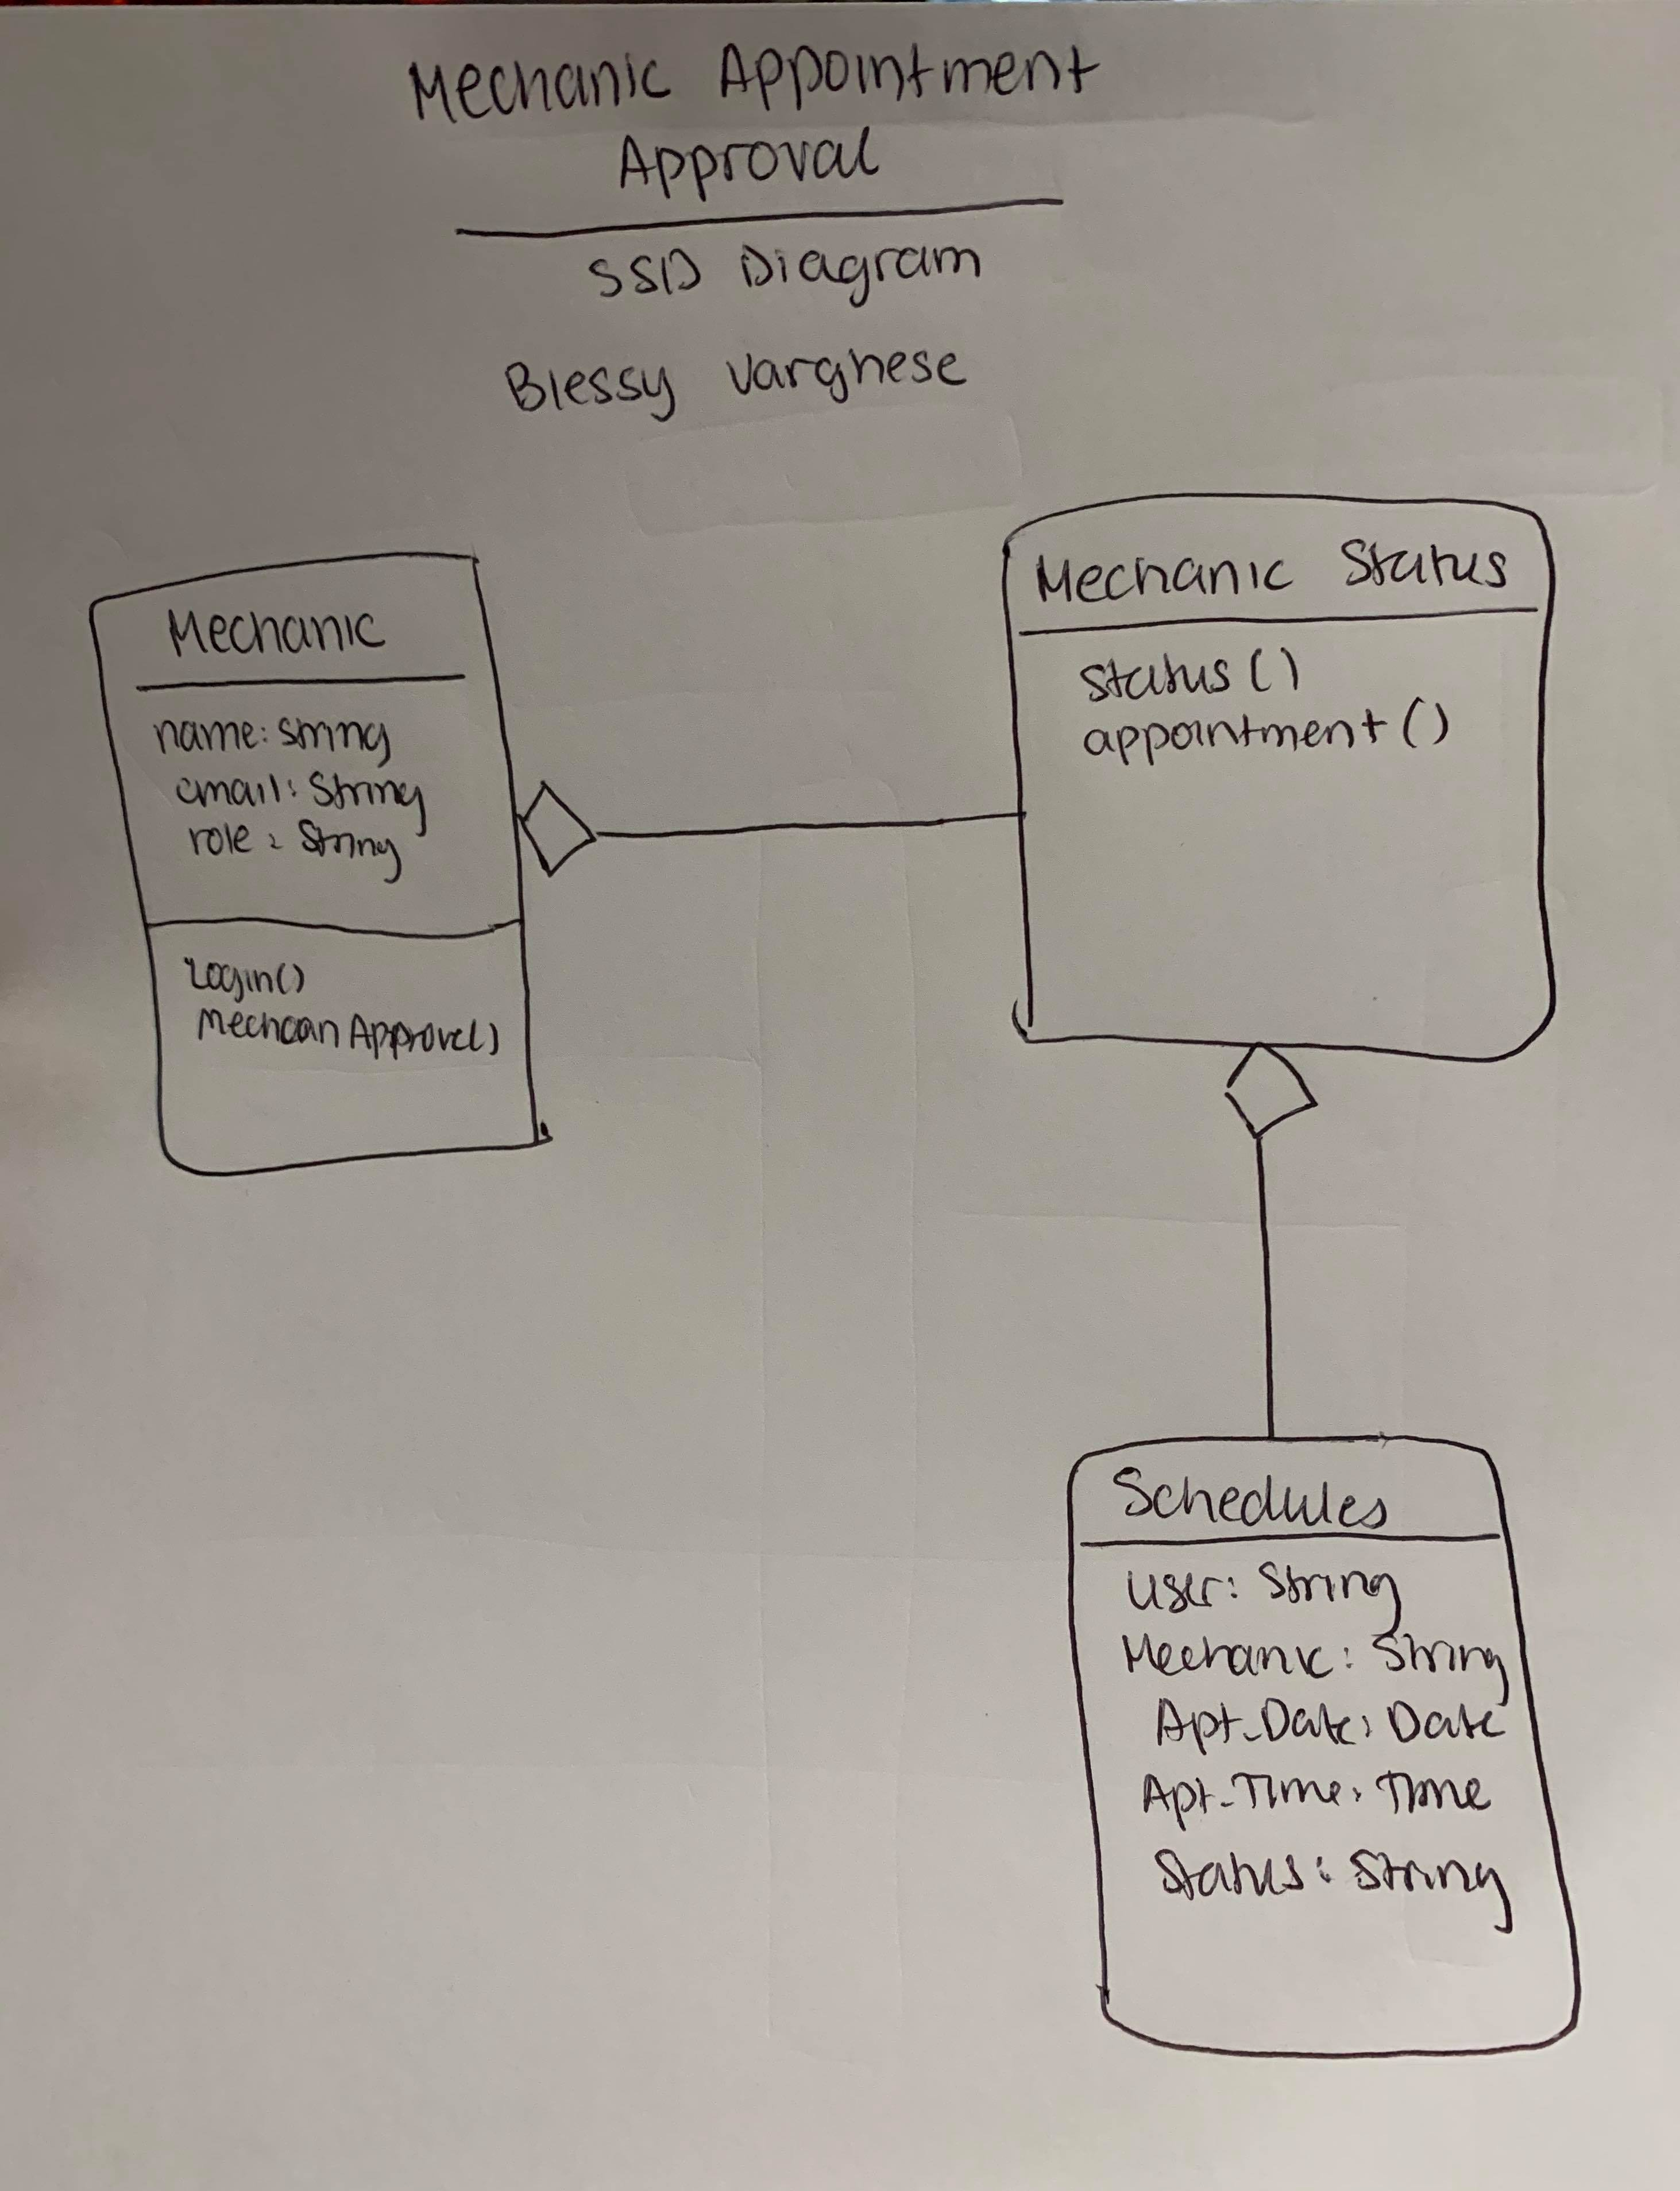 Mechanic Appointment
Approval
SSD Diagram
Blessy Varghese
Mechanic
name: String
email: String
role: String
Login()
MechcanApprovel)
Mechanic Status
Status ()
appointment ()
Schedules
User: String
Mechanic: String
Apt_Date: Date
Apt_Time: Time
Status: String